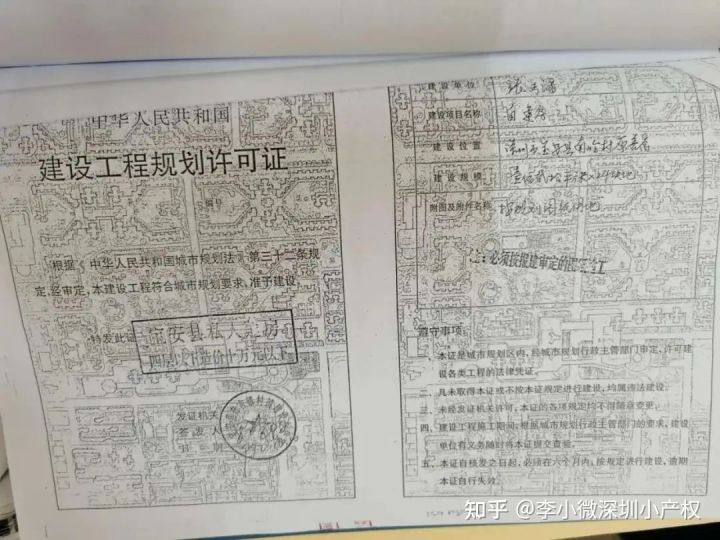 中华人民共和国
建设工程规划许可证
编号
根据《中华人民共和国城市规划法》第三十二条规
定，经审定，本建设工程符合城市规划要求，准予建设。
特发此证
宝安县私人建房
四层以下造价十万元以下
发证机关
签发人
日期
建设单位
建设项目名称
建设位置
建设规模
附图及附件名称 按规划图纸用地
注：必须按报建审定的图纸施工
遵守事项：
一、本证是城市规划区内，经城市规划行政主管部门审定，许可建
设各类工程的法律凭证。
二、凡未取得本证或不按本证规定进行建设，均属违法建设。
三、未经发证机关许可，本证的各项规定均不得随意变更。
四、建设工程施工期间，根据城市规划行政主管部门的要求，建设
单位有义务随时将本证提交查验。
五、本证自核发之日起，必须在六个月内，按规定进行建设，逾期
本证自行失效。
知乎 @李小微深圳小产权